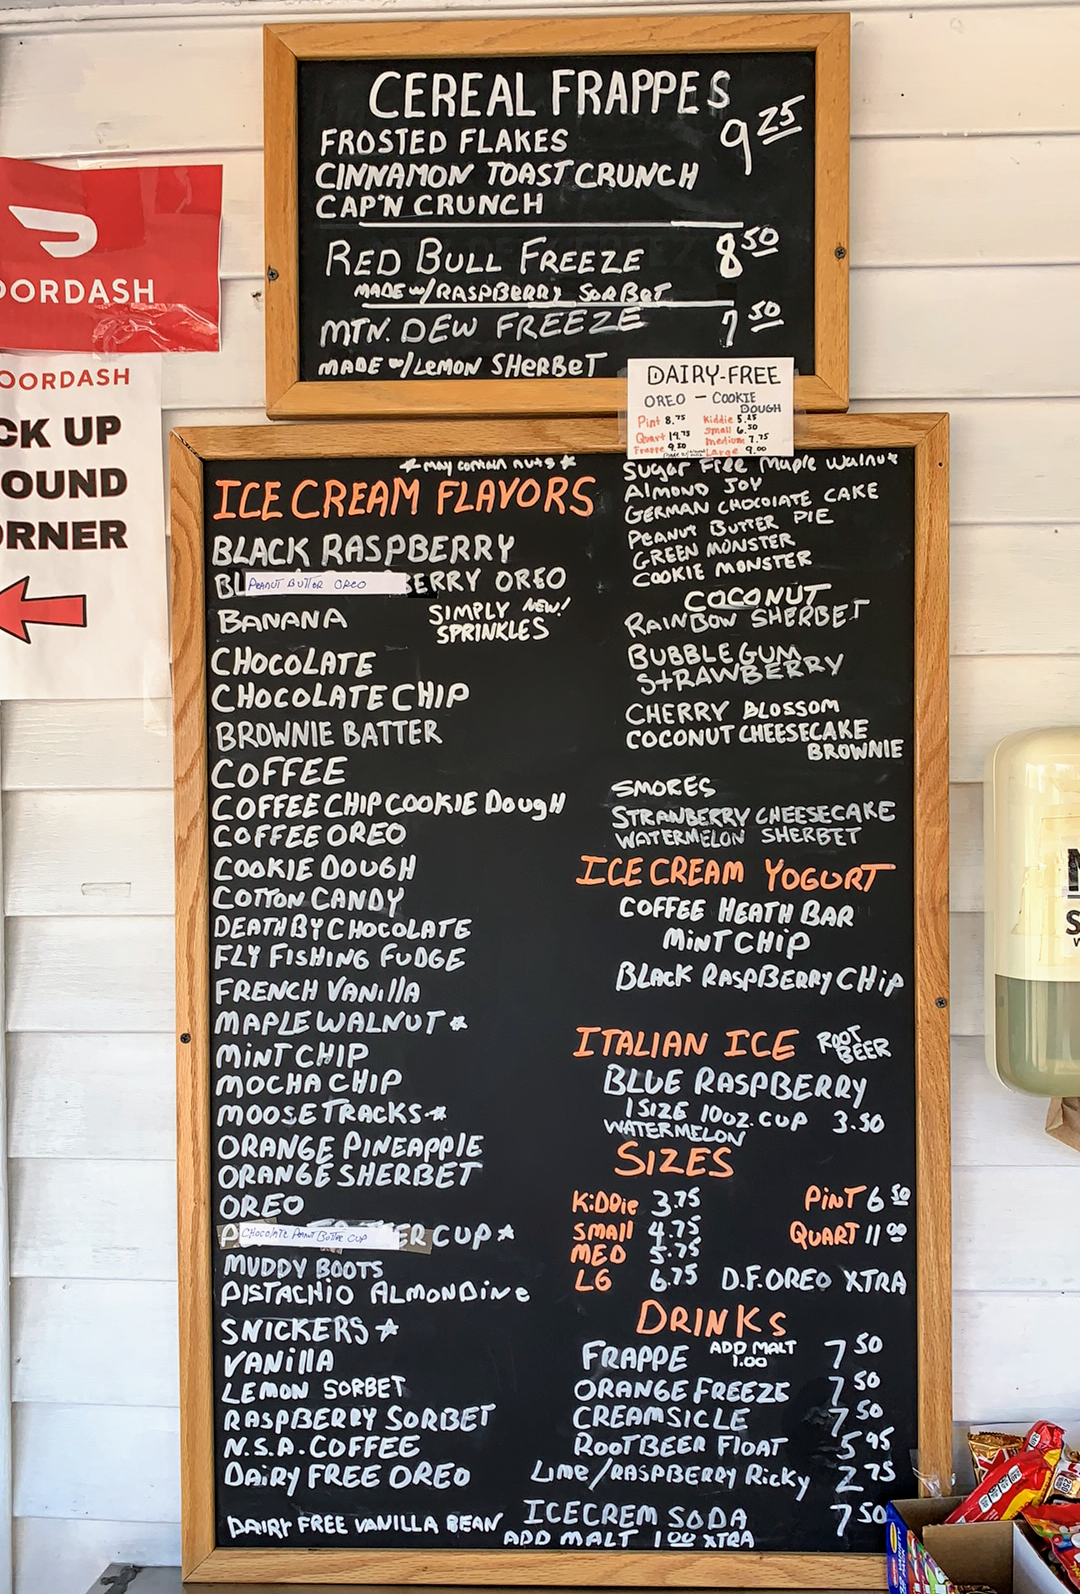 CEREAL FRAPPES
9 25
FROSTED FLAKES
CINNAMON TOAST CRUNCH
CAP'N CRUNCH
RED BULL FREEZE 8 50
MADE w/RASPBERRY SORBET
MTN. DEW FREEZE 7 50
MADE w/LEMON SHERBET
DOORDASH
DOORDASH
CK UP
OUND
ORNER
DAIRY-FREE
OREO - COOKIE
DOUGH
Pint 8.75
Quart 14.75
Frappe 9.50
Kiddie 5.25
Small 6.50
Medium 7.75
Large 9.00
* may contain nuts *
ICE CREAM FLAVORS
BLACK RASPBERRY
BL PEANUT BUTTER OREO BERRY OREO
BANANA
SIMPLY NEW!
SPRINKLES
CHOCOLATE
CHOCOLATE CHIP
BROWNIE BATTER
COFFEE
COFFEE CHIP COOKIE DOUGH
COFFEE OREO
COOKIE DOUGH
COTTON CANDY
DEATH BY CHOCOLATE
FLY FISHING FUDGE
FRENCH VANIllA
MAPLE WALNUT *
MINT CHIP
MOCHA CHIP
MOOSE TRACKS *
ORANGE PINEAPPlE
ORANGE SHERBET
OREO
P CHOCOLATE PEANUT BUTTER CUP ER CUP *
MUDDY BOOTS
PISTACHIO ALMONDINE
SNICKERS *
VANIllA
LEMON SORBET
RASPBERRY SORBET
N.S.A. COFFEE
DAIRY FREE OREO
DAIRY FREE VANILLA BEAN
Sugar Free Maple Walnut
ALMOND JOY
GERMAN CHOCOLATE CAKE
PEANUT BUTTER PIE
GREEN MONSTER
COOKIE MONSTER
COCONUT
RAINBOW SHERBET
BUBBLE GUM
STRAWBERRY
CHERRY BLOSSOM
COCONUT CHEESECAKE
BROWNIE
SMORES
STRAWBERRY CHEESECAKE
WATERMELON SHERBET
ICE CREAM YOGURT
COFFEE HEATH BAR
MINT CHIP
BLACK RASPBERRY CHIP
ITALIAN ICE ROOT
BEER
BLUE RASPBERRY
1 SIZE 10oz. CUP 3.50
WATERMELON
SIZES
KiDDie 3.75 PINT 6 50
SMAll 4.75 QUART 11 00
MED 5.75
LG 6.75 D.F. OREO XTRA
DRINKS
FRAPPE ADD MALT 1.00 7 50
ORANGE FREEZE 7 50
CREAMSICLE 7 50
ROOTBEER FlOAT 5 95
LIME/RASPBERRY RICKY 2 75
ICECREM SODA 7 50
ADD MALT 1 00 XTRA